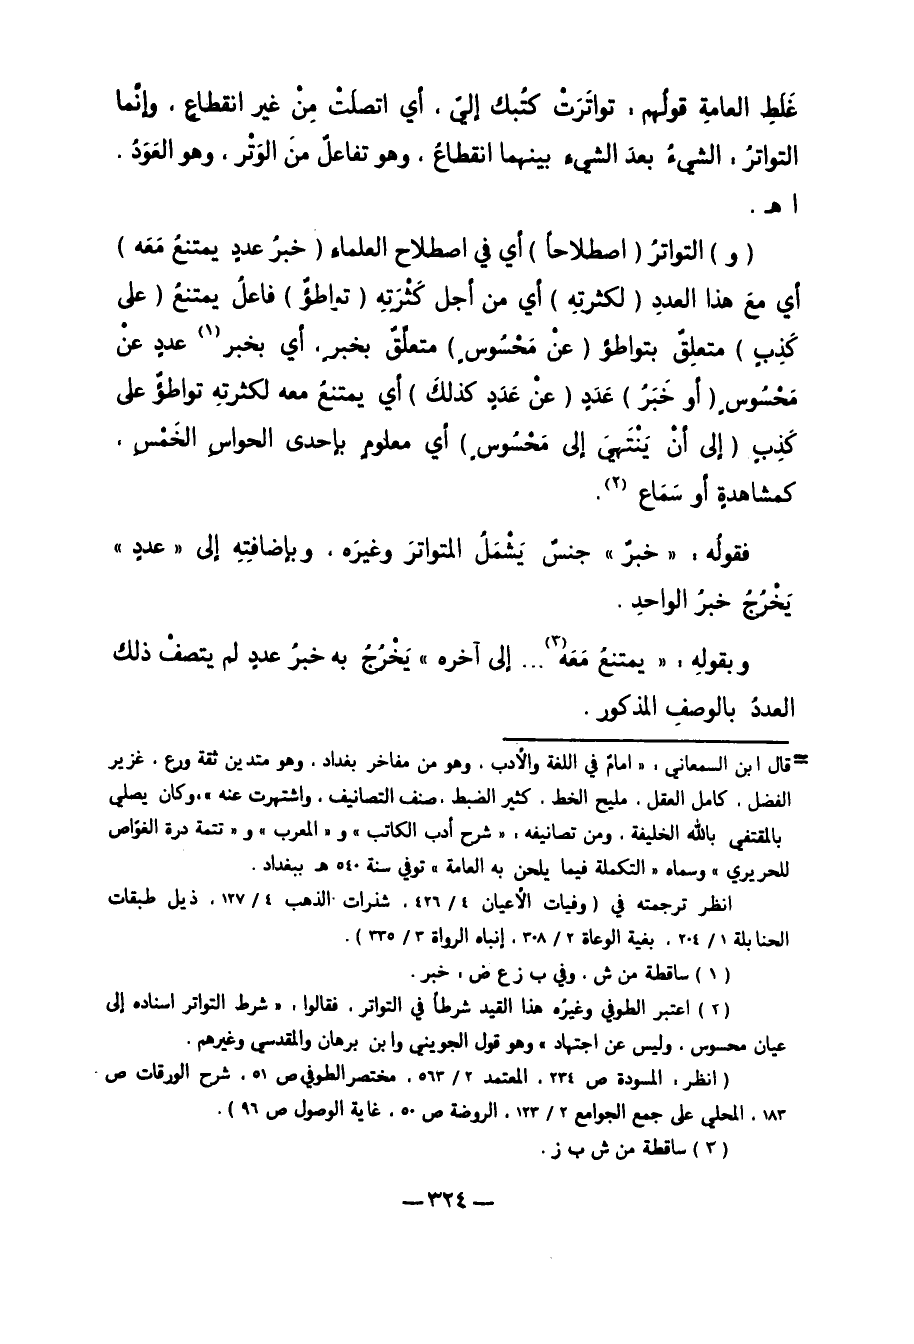 غَلَطِ العامةِ قولُهم : تواتَرَتْ كتُبك إليّ ، أي اتصلَتْ مِنْ غير انقطاعٍ ، وإنَّما
التواترُ : الشيءُ بعدَ الشيء بينهما انقطاعُ ، وهو تفاعلٌ منَ الوَتْر ، وهو العَوَدُ .
ا هـ .
( و ) التواترُ ( اصطلاحاً ) أي في اصطلاح العلماء ( خبرُ عددٍ يمتنعُ مَعَه )
أي معَ هذا العددِ ( لكثرتِهِ ) أي من أجل كَثْرَتِهِ ( تواطؤٌ ) فاعلُ يمتنعُ ( على
كَذِبٍ ) متعلِقٌ بتواطؤ ( عنْ مَحْسُوسٍ ) متعلّقٌ بخبرٍ ، أي بخبر(١) عددٍ عنْ
مَحْسُوسٍ ( أو خَبَرُ ) عَدَدٍ ( عنْ عَدَدٍ كذلكَ ) أي يمتنعُ معه لكثرتهِ تواطؤٌ على
كَذِبٍ ( إلى أنْ يَنْتَهيَ إلى مَحْسُوسٍ ) أي معلومٍ بإحدى الحواسِ الخَمْسِ ،
كمشاهدةٍ أو سَمَاع (٢) .
فقولُه : « خبرٌ » جنسٌ يَشْمَلُ المتواترَ وغيرَه ، وبإضافتِهِ إلى « عددٍ »
يَخْرُجُ خبرُ الواحدِ .
وبقولهِ : « يمتنعُ مَعَه(٣) ... إلى آخره » يَخْرُجُ به خبرُ عددٍ لم يتصفْ ذلك
العددُ بالوصفِ المذكور .
= قال ابن السمعاني : « امامٌ في اللغة والأدب ، وهو من مفاخر بغداد ، وهو متدين ثقة ورع ، غزير
الفضل ، كامل العقل ، مليح الخط ، كثير الضبط ، صنف التصانيف ، واشتهرت عنه » ، وكان يصلي
بالمقتفي بالله الخليفة ، ومن تصانيفه : « شرح أدب الكاتب » و « المعرب » و « تتمة درة الغوّاص
للحريري » وسماه « التكملة فيما يلحن به العامة » توفي سنة ٥٤٠ هـ ببغداد .
انظر ترجمته في ( وفيات الأعيان ٤ / ٤٢٦ ، شذرات الذهب ٤ / ١٢٧ ، ذيل طبقات
الحنابلة ١ / ٢٠٤ ، بغية الوعاة ٢ / ٣٠٨ ، إنباه الرواة ٣ / ٣٣٥ ) .
( ١ ) ساقطة من ش ، وفي ب ز ع ض : خبر .
( ٢ ) اعتبر الطوفي وغيرُه هذا القيد شرطاً في التواتر ، فقالوا : « شرط التواتر اسناده إلى
عيان محسوس ، وليس عن اجتهاد » وهو قول الجويني وابن برهان والمقدسي وغيرهم .
( انظر : المسودة ص ٢٣٤ ، المعتمد ٢ / ٥٦٣ ، مختصر الطوفي ص ٥١ ، شرح الورقات ص
١٨٣ ، المحلي على جمع الجوامع ٢ / ١٢٣ ، الروضة ص ٥٠ ، غاية الوصول ص ٩٦ ) .
( ٣ ) ساقطة من ش ب ز .
— ٣٢٤ —